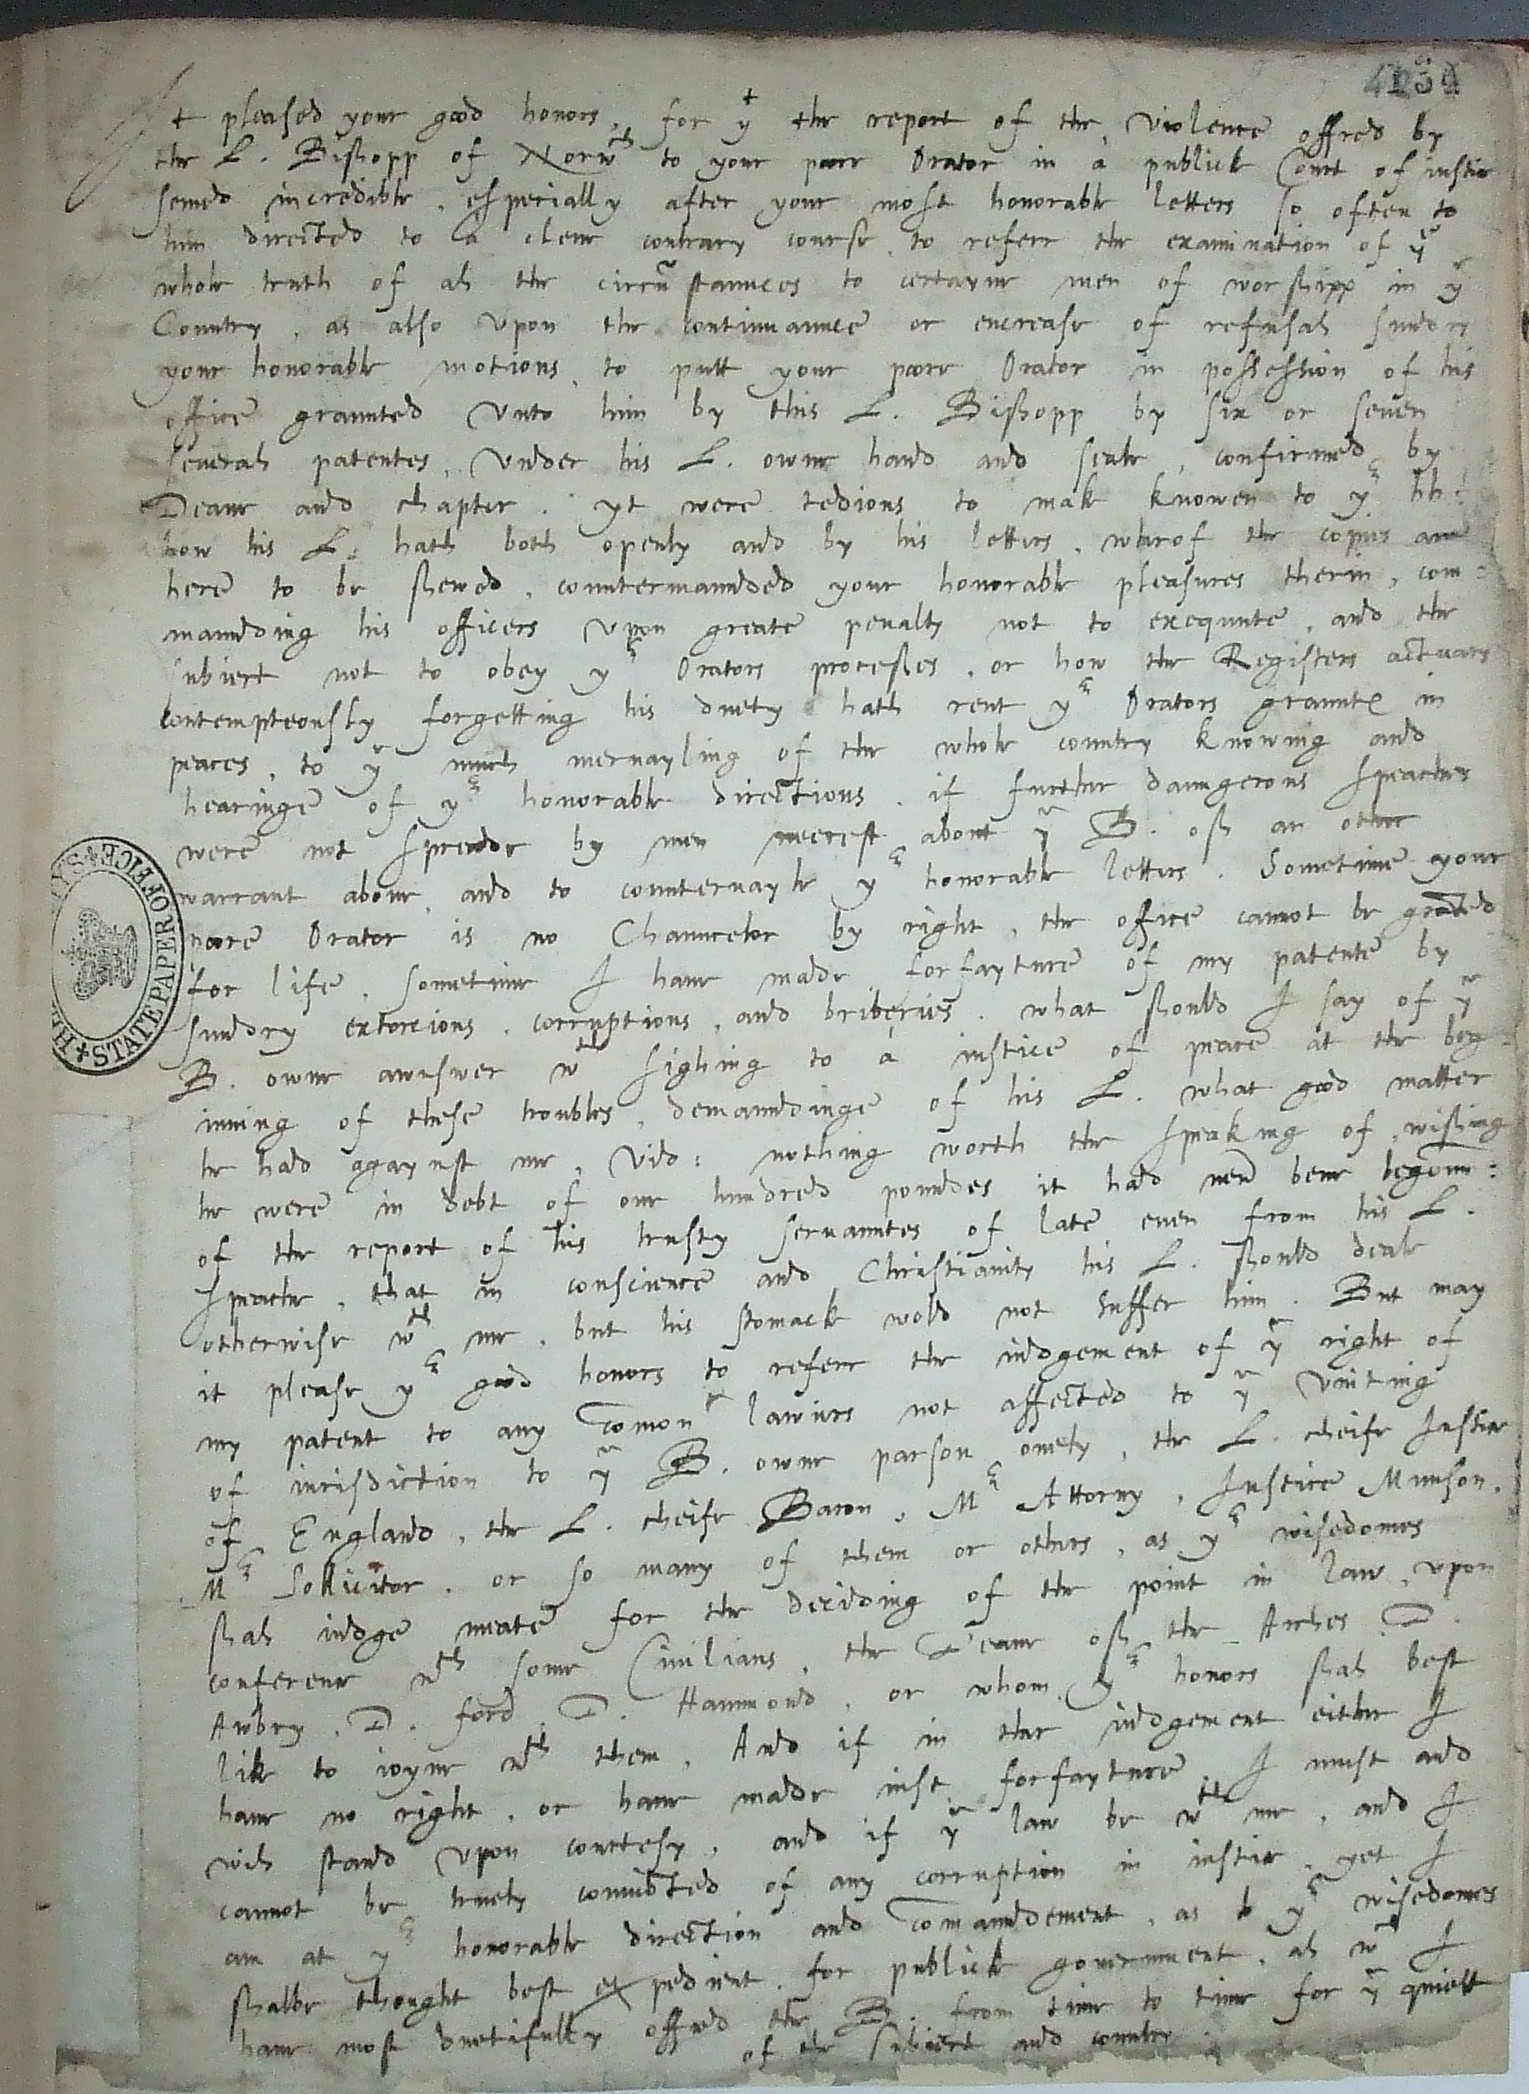 134
It pleased your good honors, for yt the report of the violence offred by
the L. Bishopp of Norwch to your poore Orator in a publick Court of iustice
semed incredible, especially after your most honorable letters so often to
him directed to a clene contrary course, to referr the examination of ye
whole truth of all the circumstaunces to certayne men of worshipp in ye
Country, as also vpon the continuaunce or encrease of refusall sundry
your honorable motions, to putt your poore Orator in possession of his
office graunted vnto him by this L. Bishopp by six or seuen
seuerall patentes, vnder his L. owne hand and seale, confirmed by
Deane and chapter. yt were tedious to make knowen to yr hh:
how his L. hath both openly and by his letters, wherof the copies are
here to be shewed, countermaunded your honorable pleasures therin, com=
maunding his officers vpon greate penalty not to exequute, and the
subiect not to obey yr Orators processes, or how the Registers actuary
contempteously forgetting his duety hath rent yr Orators graunte in
peaces, to ye much meruayling of the whole country knowing and
hearinge of yr honorable directions, if further daungerous speaches
were not spredde by men neerest about ye B. off an other
warrant aboue, and to counteruayle yr honorable letters. Sometime your
poore Orator is no Chauncelor by right, the office cannot be graunted
for life, sometime I haue made forfayture of my patente by
sundry extorcions, corruptions, and briberies. what should I say of ye
B. owne aunswer wth sighing to a iustice of peace at the beg=
inning of these troubles, demaundinge of his L. what good matter
he had agaynst me, Vid: nothing worth the speaking of, wishing
he were in debt of one hundred poundes it had neuer bene begonne:
of the report of his trusty seruauntes of late euen from his L.
speache, that in conscience and Christianity his L. should deale
otherwise wth me, but his stomack wold not suffer him. But may
it please yr good honors to referr the iudgement of ye right of
my patent to any common lawiers not affected to ye vniting
of iurisdiction to ye B. owne parson onely, the L. cheife Iustice
of England, the L. cheife Baron, Mr Attorny, Iustice Munson,
Mr Sollicitor, or so many of them or others, as yr wisedomes
shall iudge meate for the deciding of the point in law, vpon
conference wth some Ciuilians, the Deane off the Arches D.
Awbry, D. ford, D. Hammond, or whom yr honors shall best
like to ioyne wth them, And if in ther iudgement either I
haue no right, or haue made iust forfayture, I must and
will stand vpon courtesy, and if ye law be wth me, and I
cannot be truely conuicted of any corruption in iustice, yet I
am at yr honorable direction and commaundement, as to yr wisedomes
shalbe thought best expedient for publick gouernment, all wch I
haue most duetifully offred the B. from time to time for ye quiett
of the subiect and country.
STATE PAPER OFFICE